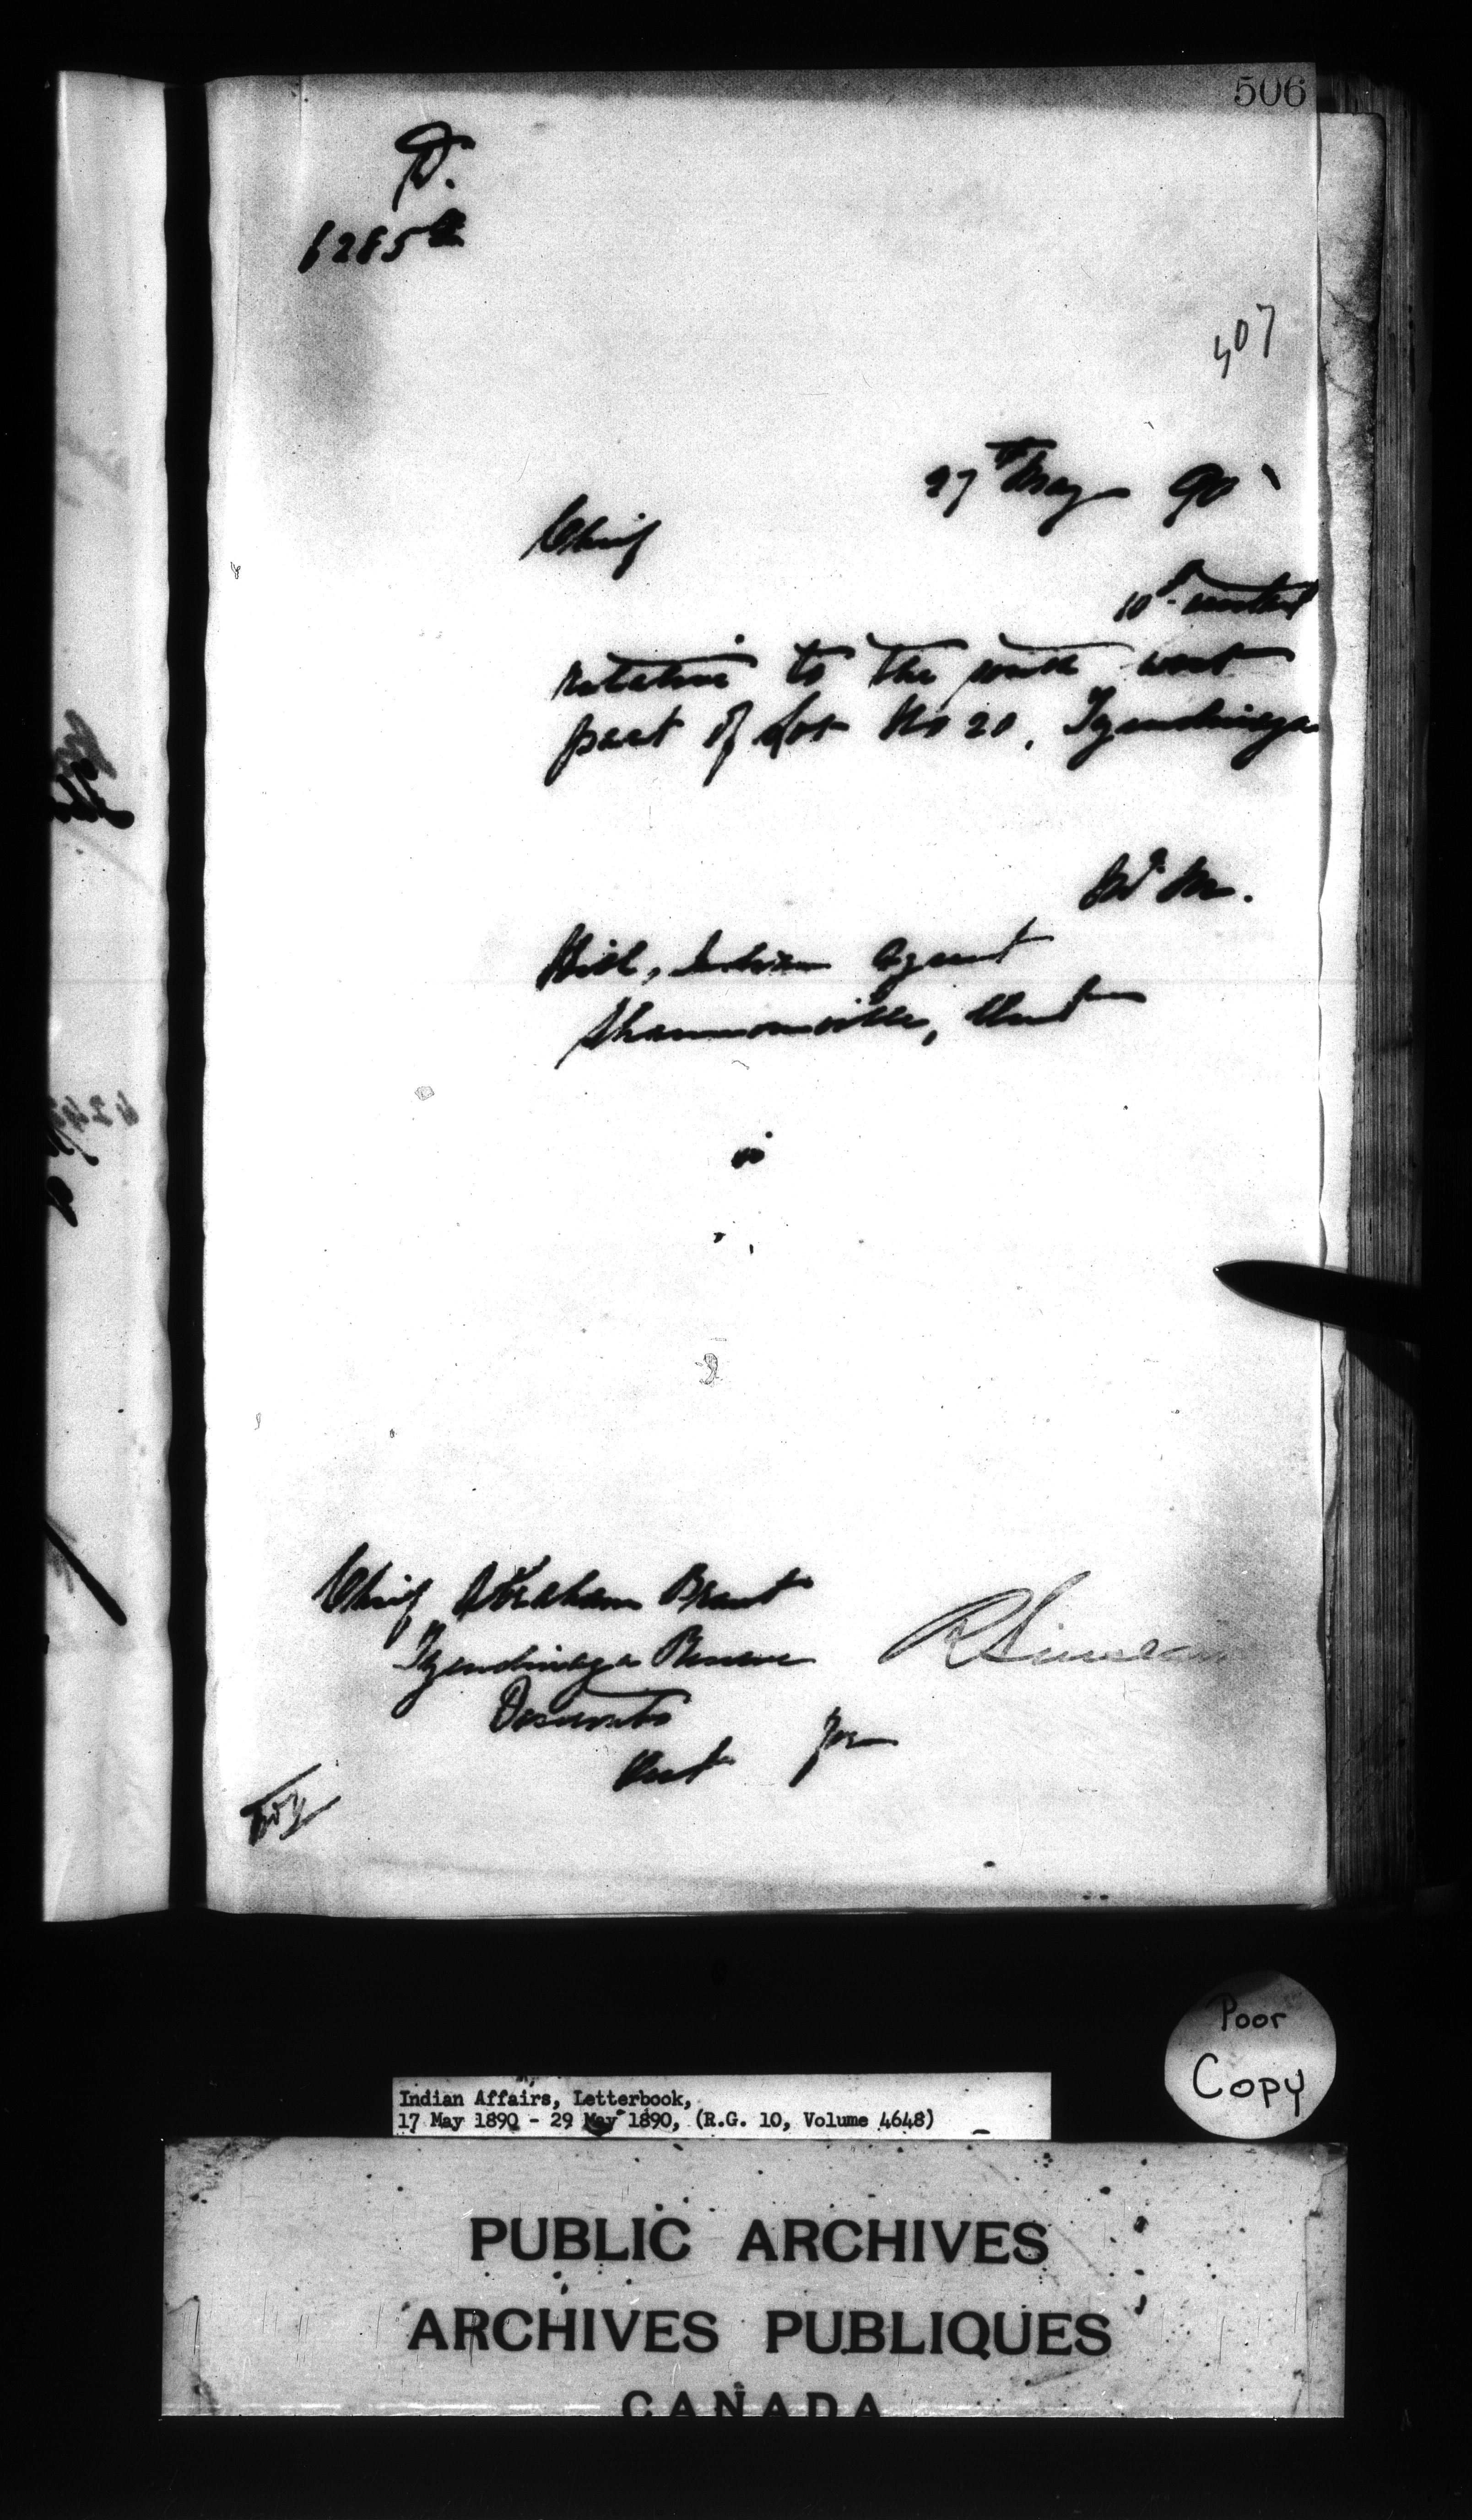 506
D.
407
27th May 90
Chief
10th instant
relative to the south west
part of Lot No 20, Tyendinaga
Wm M.
Hill, Indian Agent
Shannonville, Ont
Chief Abraham Brant
Tyendinaga Reserve
Deseronto
Ont
R Sinclair
for
Poor
Copy
Indian Affairs, Letterbook,
17 May 1890 - 29 May 1890, (R.G. 10, Volume 4648)
PUBLIC ARCHIVES
ARCHIVES PUBLIQUES
CANADA